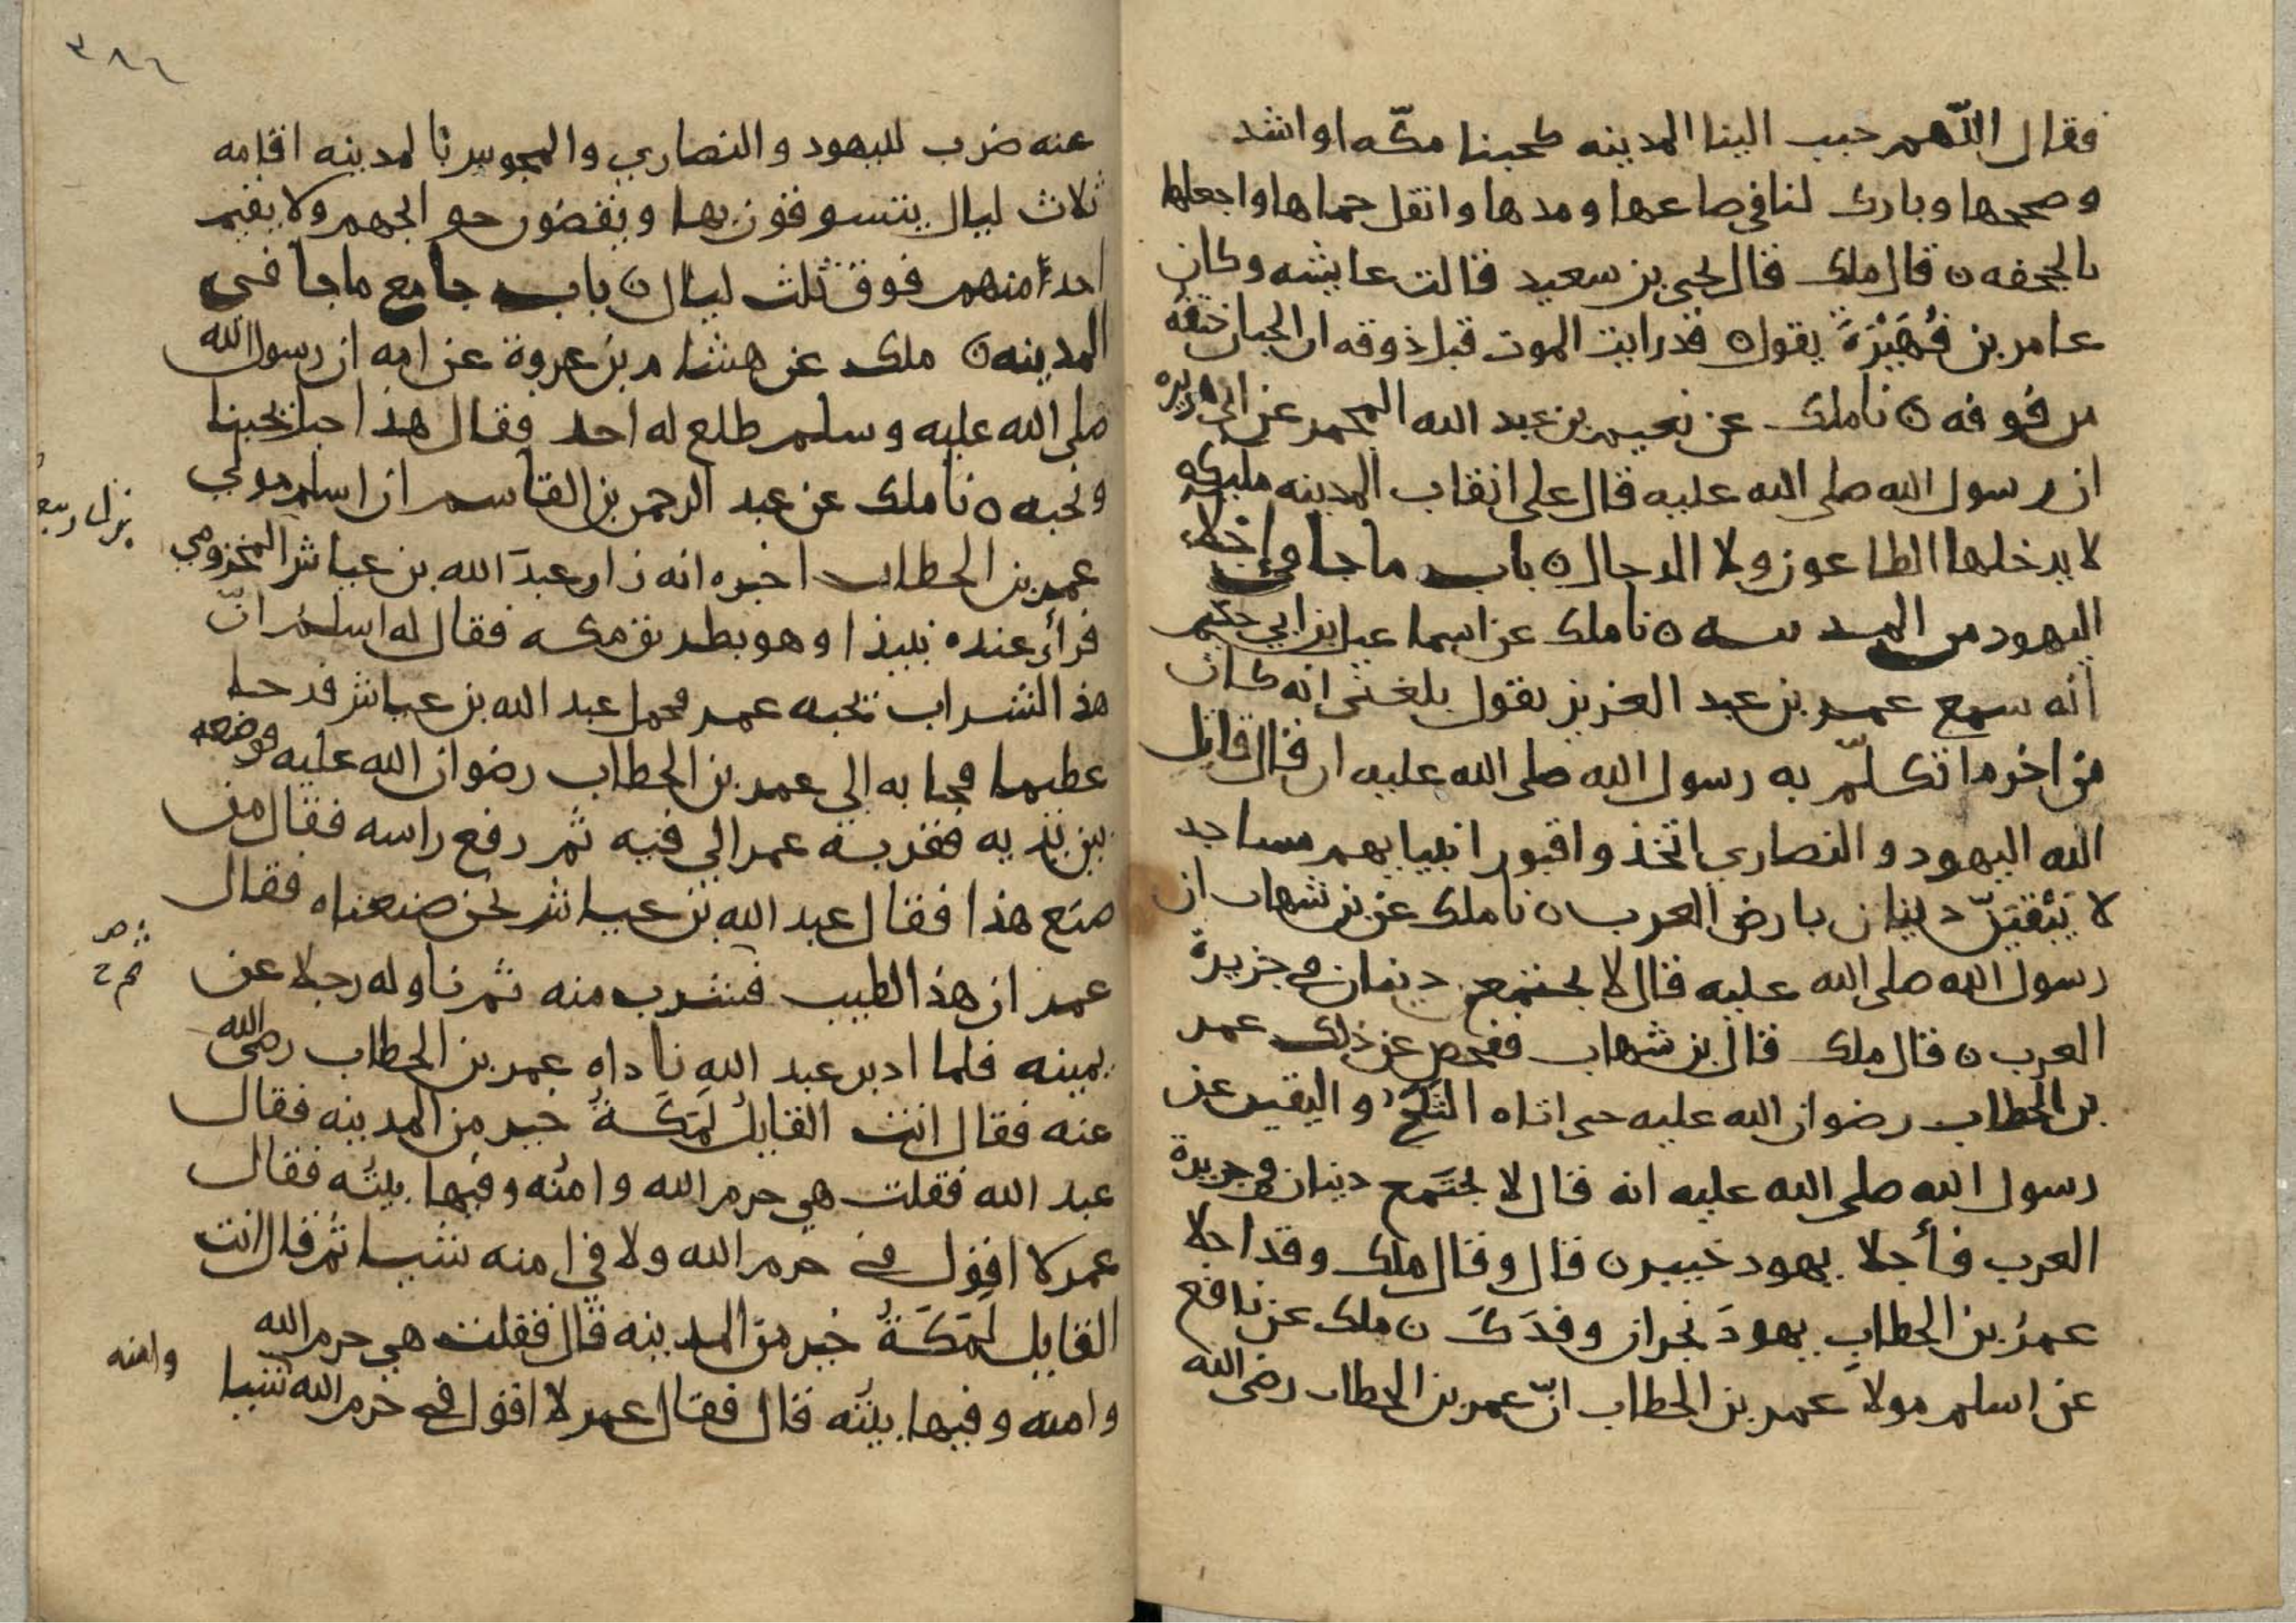 فقال اللهم حبب الينا المدينه كحبنا مكّه او اشد
وصححها وبارك لنا في صاعها ومدها وانقل حماها واجعلها
بالجحفه ن قال ملك قال يحيى بن سعيد قالت عايشه وكان
عامر بن فُهَيْرَةَ يقول ن قد رايت الموت قبل ذوقه ان الجبان حتفه
من فوقه ن نا ملك عن نعيم بن عبد الله المجمر عن ابي هريره
ان رسول الله صلى الله عليه قال على انقاب المدينه مليكه
لا يدخلها الطاعون ولا الدجال ن باب ما جا في اخلا
اليهود من المدينه ن نا ملك عن اسماعيل بن ابي حكيم
انه سمع عمر بن عبد العزيز يقول بلغني انه كان
من اخر ما تكلّم به رسول الله صلى الله عليه ان قال قاتل
الله اليهود والنصاري اتخذوا قبور انبيايهم مساجد
لا يبقينّ دينان بارض العرب ن نا ملك عن بن شهاب ان
رسول الله صلى الله عليه قال لا يجتمع دينان في جزيرة
العرب ن قال ملك قال بن شهاب ففحص عن ذلك عمر
بن الخطاب رضوان الله عليه حتى اتاه الثلج واليقين عن
رسول الله صلى الله عليه انه قال لا يجتَمع دينان في جزيرة
العرب فأجلا يهود خيبر ن قال وقال ملك وقد اجلا
عمرُ بن الخطاب يهودَ نجران وفدَكَ ن ملك عن نافع
عن اسلم مولا عمر بن الخطاب انّ عمر بن الخطاب رضى الله
٣٨٦
عنه ضرب لليهود والنصاري والمجوس بالمدينه اقامه
ثلاث ليال يتسوقون بها ويقضون حوايجهم ولا يقيم
احد منهم فوق ثلث ليال ن باب جامع ما جا في
المدينه ن ملك عن هشام بن عروة عن ابيه ان رسول الله
صلى الله عليه وسلم طلع له احد فقال هذا جبل يحبنا
ونحبه ن نا ملك عن عبد الرحمن بن القاسم ان اسلم مولي
عمر بن الخطاب اخبره انه زار عبدَ الله بن عياش المخزومي
فرأى عنده نبيذا وهو بطريق مكه فقال له اسلمُ انّ
هذا الشراب يحبه عمر فحمل عبد الله بن عياش قدحا
عظيما فجا به الي عمر بن الخطاب رضوان الله عليه فوضعه
بين يديه فقربه عمر الي فيه ثم رفع راسه فقال من
صنع هذا فقال عبد الله بن عياش نحن صنعناه فقال
عمر ان هذا لطيب فشرب منه ثم ناوله رجلا عن
يمينه فلما ادبر عبد الله ناداه عمر بن الخطاب رضى الله
عنه فقال انت القايلُ لَمَكّةُ خير من المدينه فقال
عبد الله فقلت هي حرم الله وامنُه وفيها بيتُه فقال
عمر لا اقول في حرم الله ولا في امنه شيا ثم قال انت
القايل لَمَكّةُ خير من المدينه قال فقلت هي حرم الله
وامنه
وامنه وفيها بيتُه قال فقال عمر لا اقول في حرم الله شيا